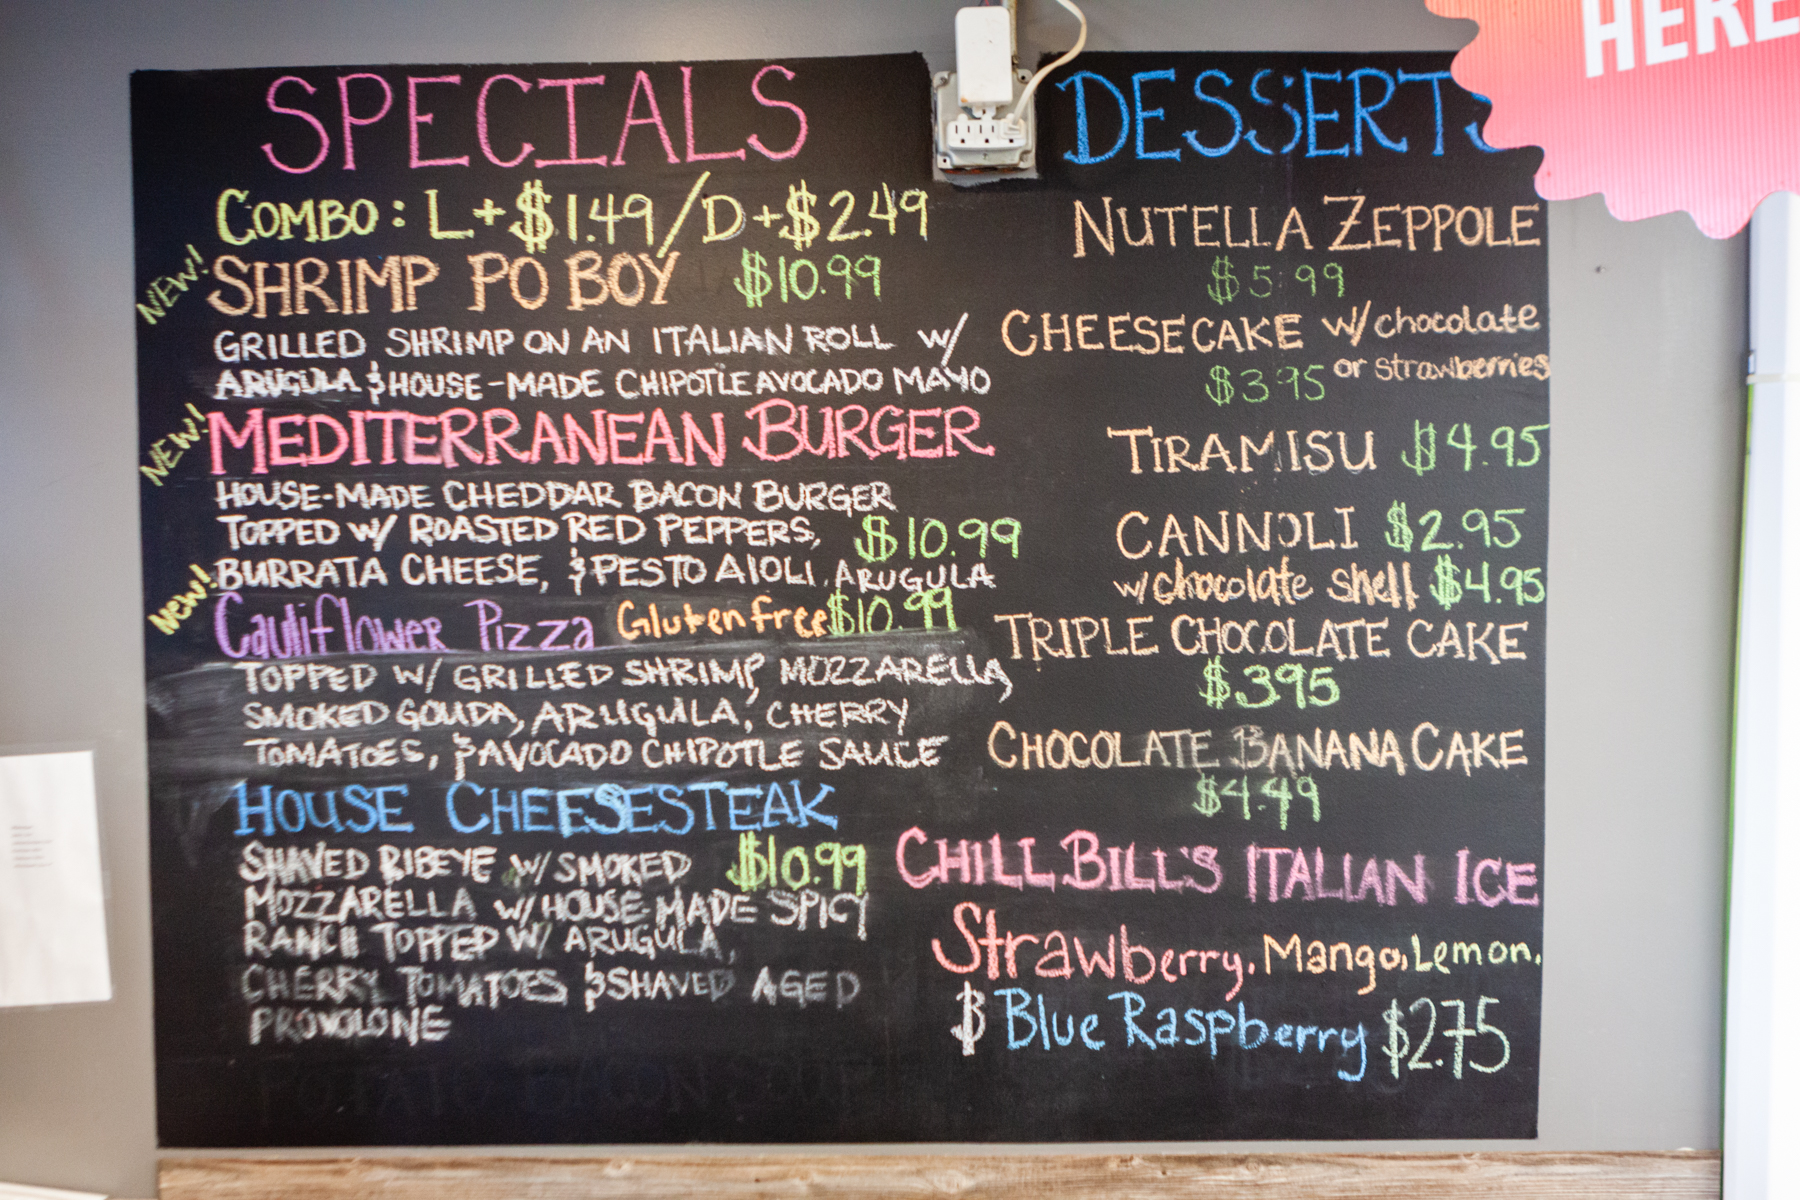 HERE
SPECIALS
COMBO: L+$1.49/D+$2.49
NEW!
SHRIMP PO BOY $10.99
GRILLED SHRIMP ON AN ITALIAN ROLL W/
ARUGULA & HOUSE-MADE CHIPOTLE AVOCADO MAYO
NEW!
MEDITERRANEAN BURGER
HOUSE-MADE CHEDDAR BACON BURGER
TOPPED W/ ROASTED RED PEPPERS, $10.99
BURRATA CHEESE, & PESTO AIOLI, ARUGULA
New!
Cauliflower Pizza Gluten free $10.99
TOPPED W/ GRILLED SHRIMP, MOZZARELLA,
SMOKED GOUDA, ARUGULA, CHERRY
TOMATOES, & AVOCADO CHIPOTLE SAUCE
HOUSE CHEESESTEAK
SHAVED RIBEYE W/ SMOKED $10.99
MOZZARELLA W/ HOUSE-MADE SPICY
RANCH TOPPED W/ ARUGULA,
CHERRY TOMATOES & SHAVED AGED
PROVOLONE
POTATO BACON SOUP
DESSERTS
NUTELLA ZEPPOLE
$5.99
CHEESECAKE w/chocolate
$3.95 or strawberries
TIRAMISU $4.95
CANNOLI $2.95
w/chocolate shell $4.95
TRIPLE CHOCOLATE CAKE
$3.95
CHOCOLATE BANANA CAKE
$4.49
CHILL BILL'S ITALIAN ICE
Strawberry, Mango, Lemon,
& Blue Raspberry $2.75